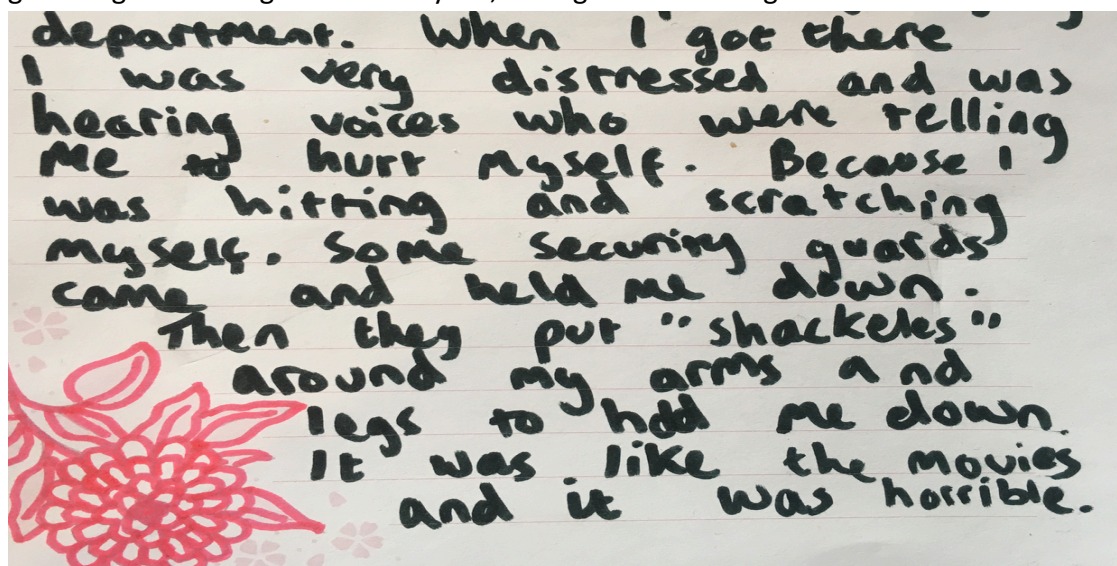 department. When I got there
I was very distressed and was
hearing voices who were telling
me to hurt myself. Because I
was hitting and scratching
myself. Some security guards
came and held me down.
Then they put "shackeles"
around my arms and
legs to hold me down.
It was like the movies
and it was horrible.